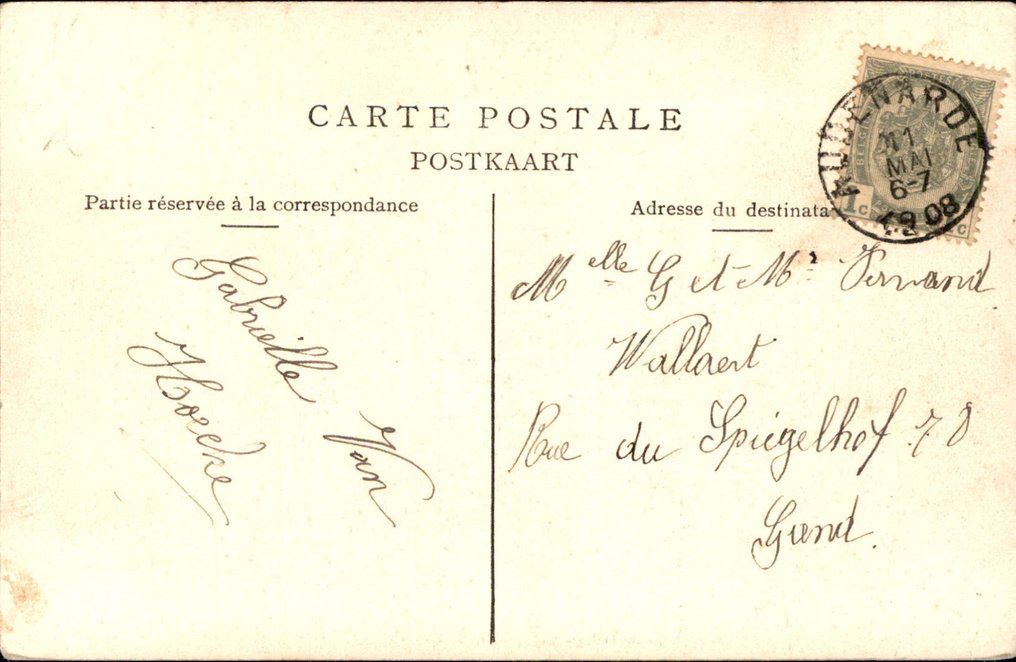 CARTE POSTALE
POSTKAART
Partie réservée à la correspondance
Adresse du destinata
AUDENARDE
11
MAI
6-7
1908
1c
c
Gabrielle Van
Hoecke
Melle G et Mr Fernand
Wallaert
Rue du Spiegelhof 78
Gand.